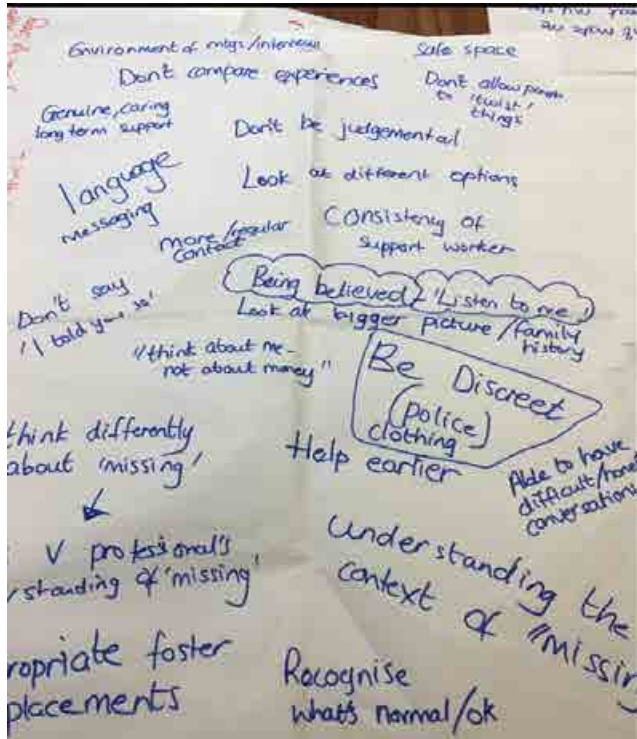 Environment of mtgs/interviews
Safe space
Don't compare experiences
Don't allow
to 'twist'
things
Genuine, caring
long term support
Don't be judgemental
Language
messaging
Look at different options
more/regular
contact
Consistency of
support worker
Being believed 'Listen to me'
Don't say
'I told you so'
Look at bigger picture/family
history
"think about me -
not about money"
Be Discreet
(police)
clothing
think differently
about 'missing'
Help earlier
Able to have
difficult/
conversations
V professional's
standing of 'missing'
Understanding the
context of "missin
ropriate foster
placements
Recognise
what's normal/ok